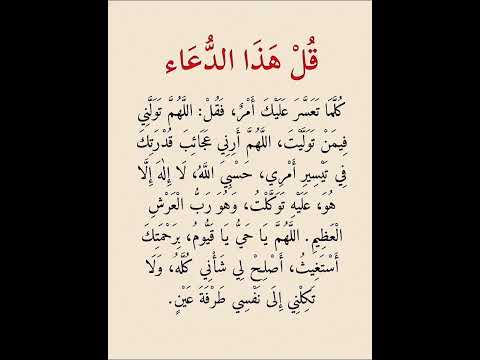 قُلْ هَذَا الدُّعَاء
كُلَّمَا تَعَسَّرَ عَلَيْكَ أَمْرٌ، فَقُلْ: اللَّهُمَّ تَوَلَّنِي
فِيمَنْ تَوَلَّيْتَ، اللَّهُمَّ أَرِنِي عَجَائِبَ قُدْرَتِكَ
فِي تَيْسِيرِ أَمْرِي، حَسْبِيَ اللَّهُ، لَا إِلَهَ إِلَّا
هُوَ، عَلَيْهِ تَوَكَّلْتُ، وَهُوَ رَبُّ الْعَرْشِ
الْعَظِيمِ. اللَّهُمَّ يَا حَيُّ يَا قَيُّومُ، بِرَحْمَتِكَ
أَسْتَغِيثُ، أَصْلِحْ لِي شَأْنِي كُلَّهُ، وَلَا
تَكِلْنِي إِلَى نَفْسِي طَرْفَةَ عَيْنٍ.